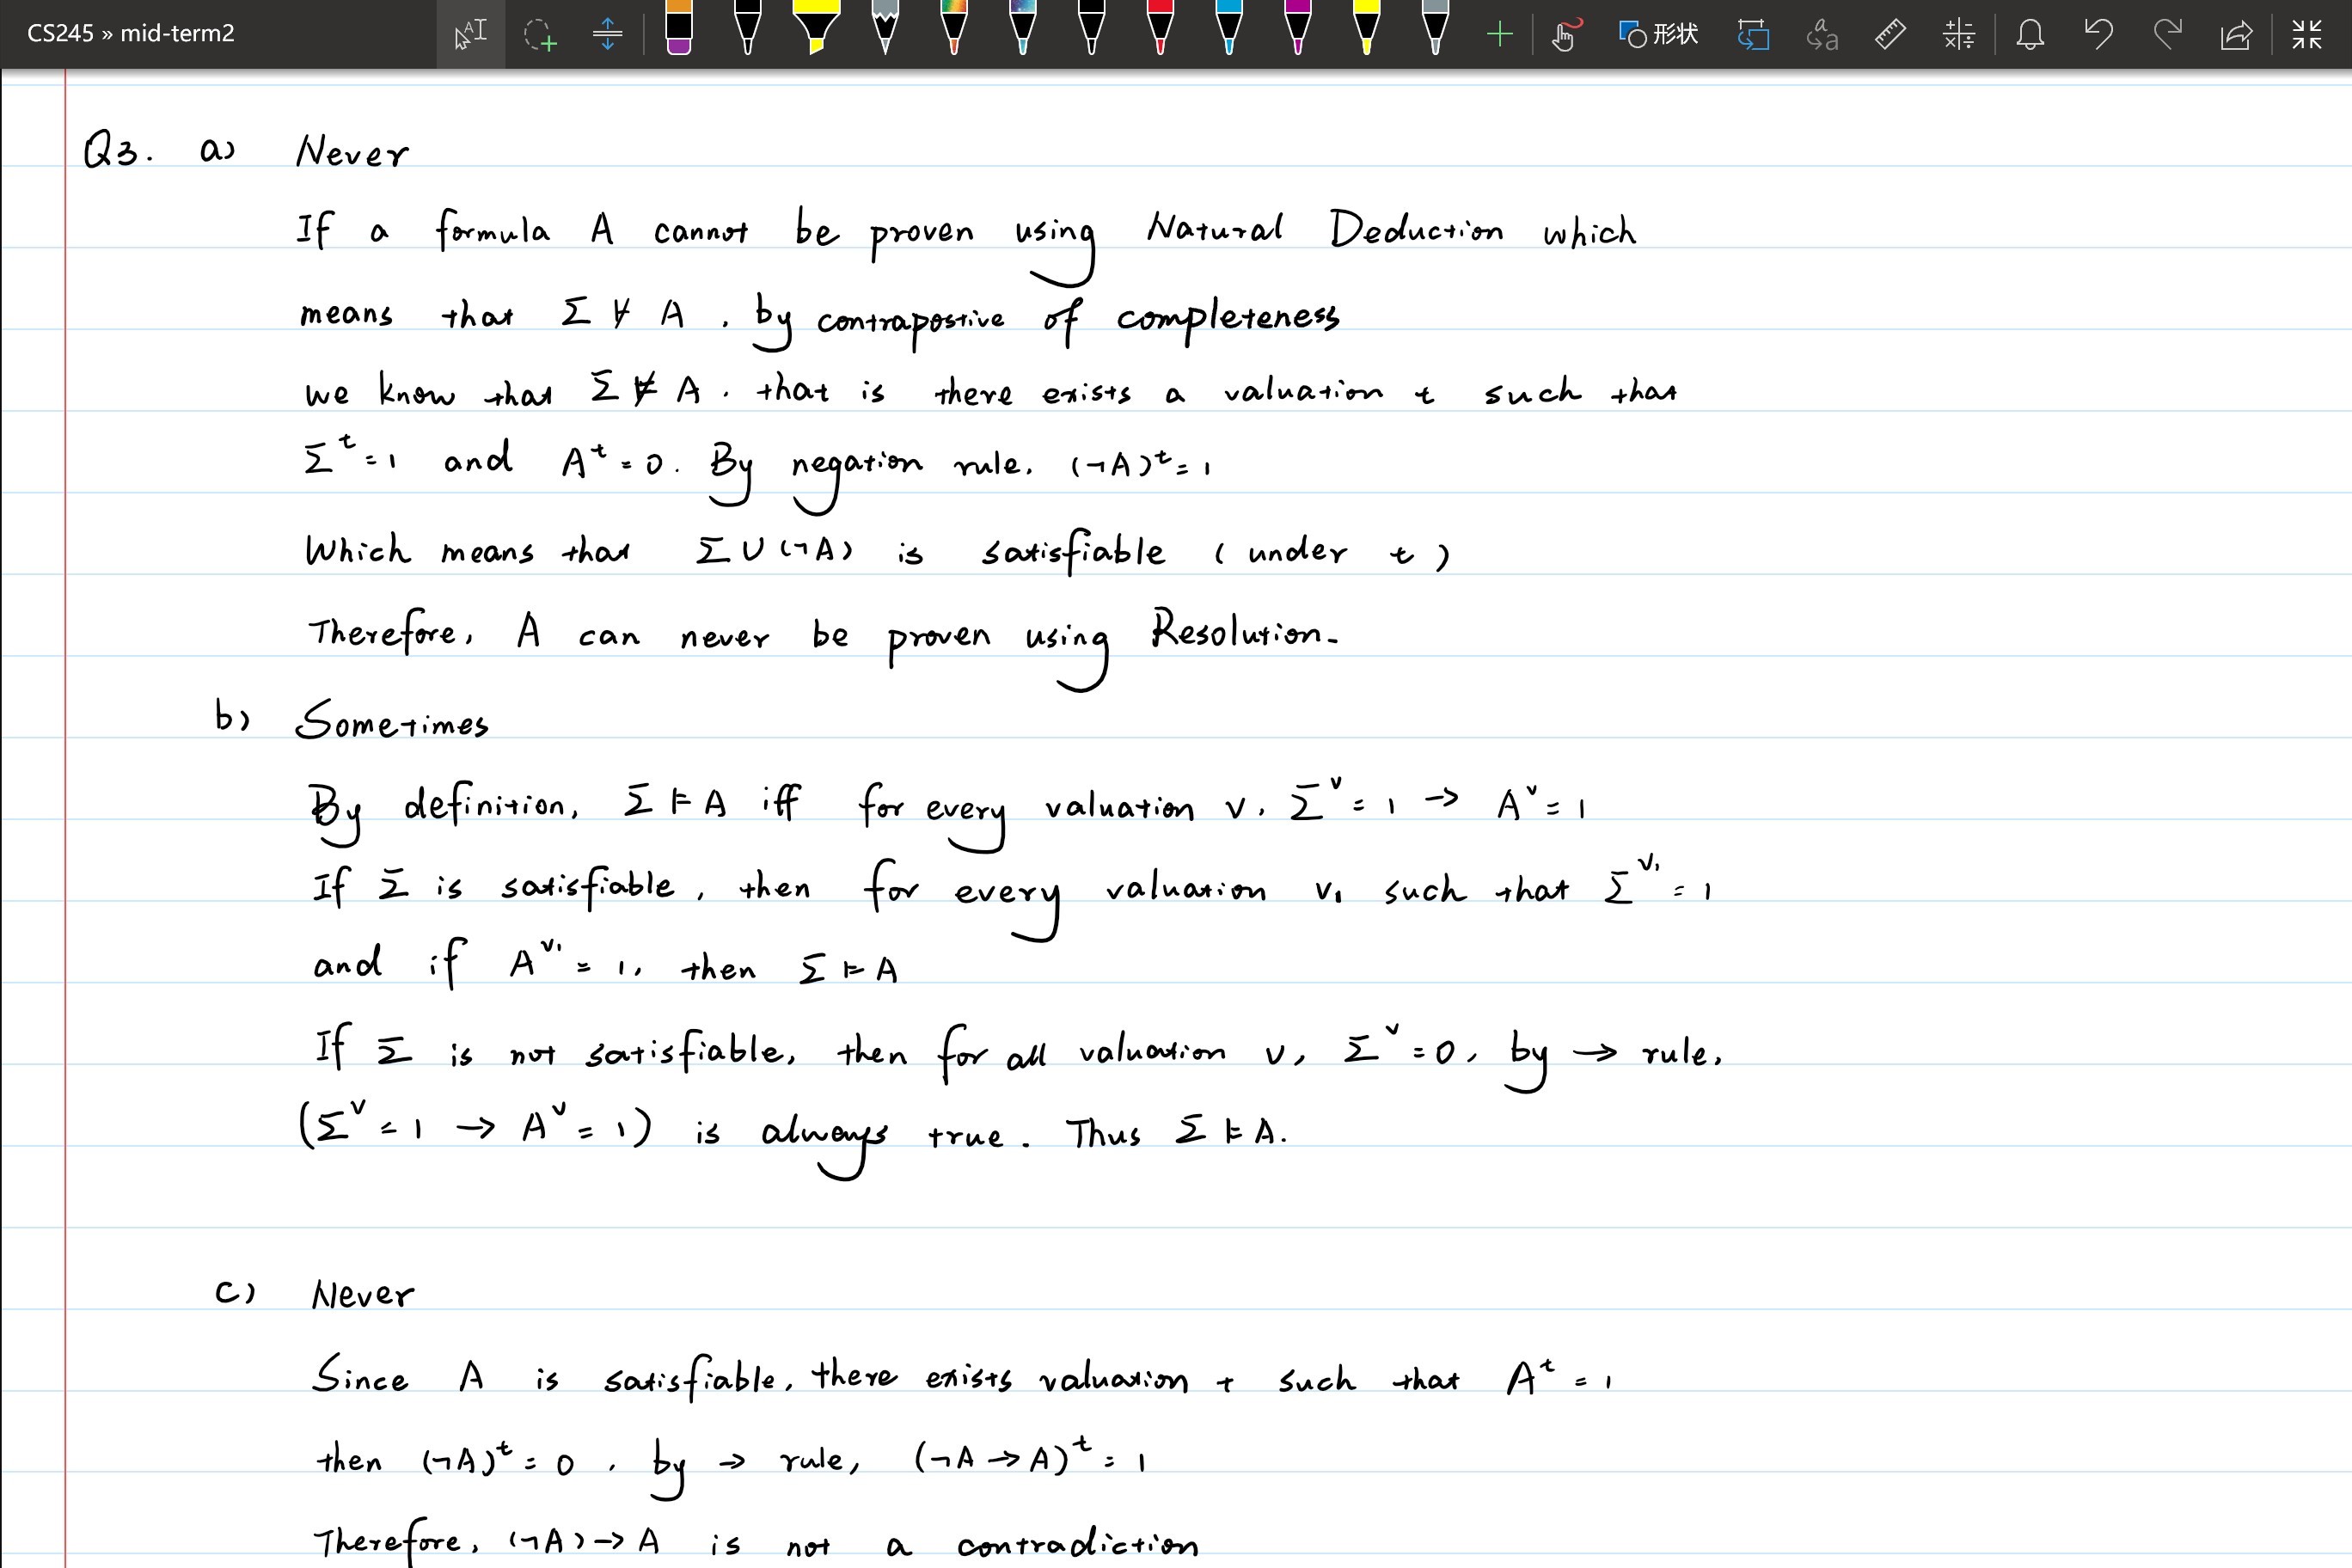 CS245 » mid-term2
形状
Q3. a) Never
If a formula A cannot be proven using Natural Deduction which
means that Σ ⊬ A . by contrapostive of completeness
we know that Σ ⊭ A . that is there exists a valuation t such that
Σᵗ = 1 and Aᵗ = 0. By negation rule. (¬A)ᵗ = 1
Which means that Σ ∪ (¬A) is satisfiable ( under t )
Therefore, A can never be proven using Resolution.
b) Sometimes
By definition, Σ ⊨ A iff for every valuation v, Σᵛ = 1 → Aᵛ = 1
If Σ is satisfiable, then for every valuation v₁ such that Σᵛ¹ = 1
and if Aᵛ¹ = 1, then Σ ⊨ A
If Σ is not satisfiable, then for all valuation v, Σᵛ = 0, by → rule,
(Σᵛ = 1 → Aᵛ = 1) is always true. Thus Σ ⊨ A.
c) Never
Since A is satisfiable, there exists valuation t such that Aᵗ = 1
then (¬A)ᵗ = 0 . by → rule, (¬A → A)ᵗ = 1
Therefore, (¬A) → A is not a contradiction